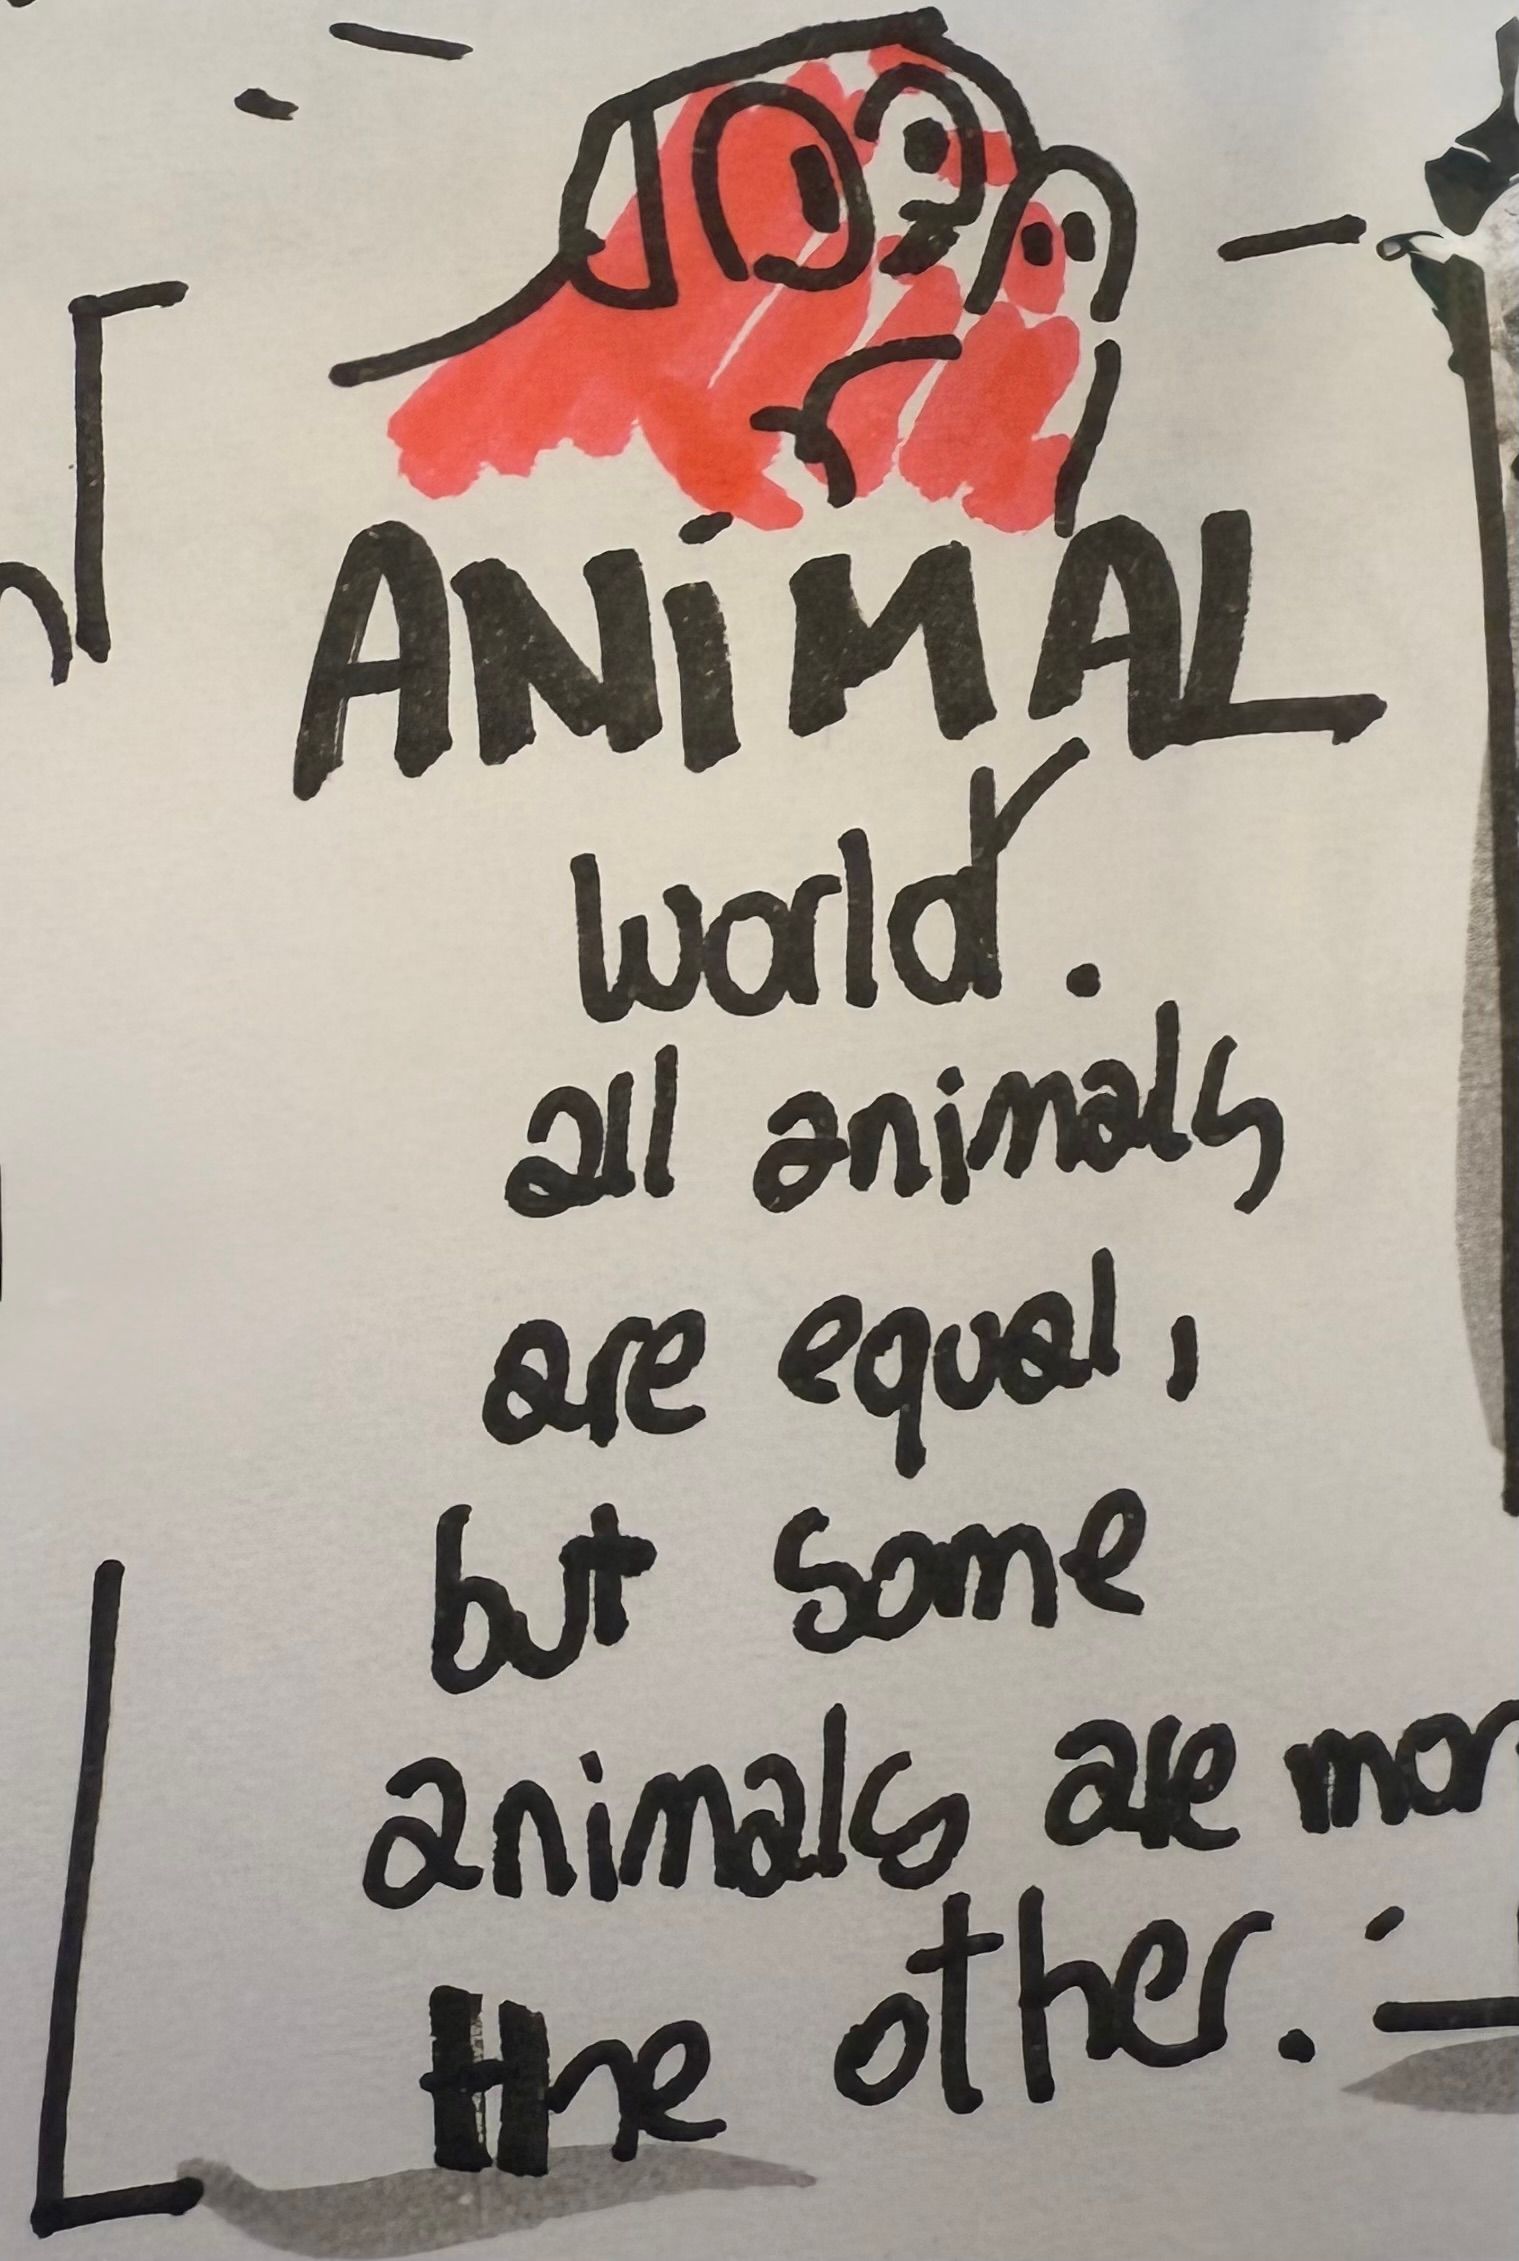 ANiMAL
world.
all animals
are equal,
but some
animals are mor
the other.